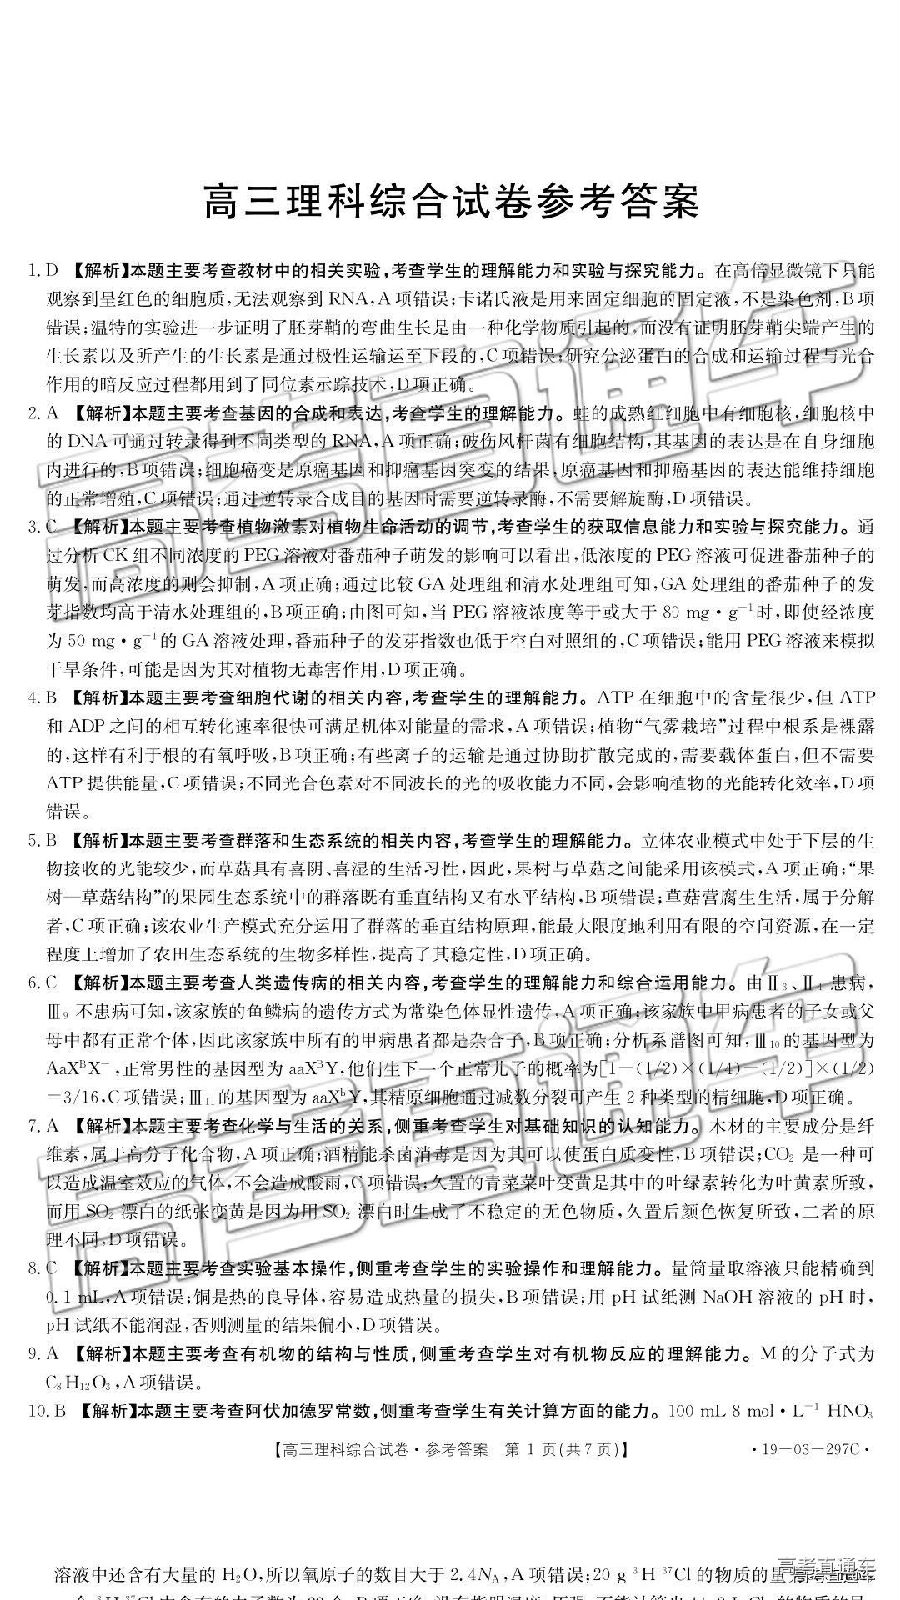 高三理科综合试卷参考答案
1. D 【解析】本题主要考查教材中的相关实验,考查学生的理解能力和实验与探究能力。在高倍显微镜下只能
观察到呈红色的细胞质,无法观察到 RNA,A 项错误;卡诺氏液是用来固定细胞的固定液,不是染色剂,B 项
错误;温特的实验进一步证明了胚芽鞘的弯曲生长是由一种化学物质引起的,而没有证明胚芽鞘尖端产生的
生长素以及所产生的生长素是通过极性运输运至下段的,C 项错误;研究分泌蛋白的合成和运输过程与光合
作用的暗反应过程都用到了同位素示踪技术,D 项正确。
2. A 【解析】本题主要考查基因的合成和表达,考查学生的理解能力。蛙的成熟红细胞中有细胞核,细胞核中
的 DNA 可通过转录得到不同类型的 RNA,A 项正确;破伤风杆菌有细胞结构,其基因的表达是在自身细胞
内进行的,B 项错误;细胞癌变是原癌基因和抑癌基因突变的结果,原癌基因和抑癌基因的表达能维持细胞
的正常增殖,C 项错误;通过逆转录合成目的基因时需要逆转录酶,不需要解旋酶,D 项错误。
3. C 【解析】本题主要考查植物激素对植物生命活动的调节,考查学生的获取信息能力和实验与探究能力。通
过分析 CK 组不同浓度的 PEG 溶液对番茄种子萌发的影响可以看出,低浓度的 PEG 溶液可促进番茄种子的
萌发,而高浓度的则会抑制,A 项正确;通过比较 GA 处理组和清水处理组可知,GA 处理组的番茄种子的发
芽指数均高于清水处理组的,B 项正确;由图可知,当 PEG 溶液浓度等于或大于 80 mg·g⁻¹时,即使经浓度
为 50 mg·g⁻¹的 GA 溶液处理,番茄种子的发芽指数也低于空白对照组的,C 项错误;能用 PEG 溶液来模拟
干旱条件,可能是因为其对植物无毒害作用,D 项正确。
4. B 【解析】本题主要考查细胞代谢的相关内容,考查学生的理解能力。ATP 在细胞中的含量很少,但 ATP
和 ADP 之间的相互转化速率很快可满足机体对能量的需求,A 项错误;植物“气雾栽培”过程中根系是裸露
的,这样有利于根的有氧呼吸,B 项正确;有些离子的运输是通过协助扩散完成的,需要载体蛋白,但不需要
ATP 提供能量,C 项错误;不同光合色素对不同波长的光的吸收能力不同,会影响植物的光能转化效率,D 项
错误。
5. B 【解析】本题主要考查群落和生态系统的相关内容,考查学生的理解能力。立体农业模式中处于下层的生
物接收的光能较少,而草菇具有喜阴、喜湿的生活习性,因此,果树与草菇之间能采用该模式,A 项正确;“果
树—草菇结构”的果园生态系统中的群落既有垂直结构又有水平结构,B 项错误;草菇营腐生生活,属于分解
者,C 项正确;该农业生产模式充分运用了群落的垂直结构原理,能最大限度地利用有限的空间资源,在一定
程度上增加了农田生态系统的生物多样性,提高了其稳定性,D 项正确。
6. C 【解析】本题主要考查人类遗传病的相关内容,考查学生的理解能力和综合运用能力。由Ⅱ₃、Ⅱ₄ 患病,
Ⅲ₉ 不患病可知,该家族的鱼鳞病的遗传方式为常染色体显性遗传,A 项正确;该家族中甲病患者的子女或父
母中都有正常个体,因此该家族中所有的甲病患者都是杂合子,B 项正确;分析系谱图可知,Ⅲ₁₀的基因型为
AaXᴮX⁻,正常男性的基因型为 aaXᴮY,他们生下一个正常儿子的概率为[1-(1/2)×(1/4)-(1/2)]×(1/2)
=3/16,C 项错误;Ⅲ₁₁的基因型为 aaXᵇY,其精原细胞通过减数分裂可产生 2 种类型的精细胞,D 项正确。
7. A 【解析】本题主要考查化学与生活的关系,侧重考查学生对基础知识的认知能力。木材的主要成分是纤
维素,属于高分子化合物,A 项正确;酒精能杀菌消毒是因为其可以使蛋白质变性,B 项错误;CO₂ 是一种可
以造成温室效应的气体,不会造成酸雨,C 项错误;久置的青菜菜叶变黄是其中的叶绿素转化为叶黄素所致,
而用 SO₂ 漂白的纸张变黄是因为用 SO₂ 漂白时生成了不稳定的无色物质,久置后颜色恢复所致,二者的原
理不同,D 项错误。
8. C 【解析】本题主要考查实验基本操作,侧重考查学生的实验操作和理解能力。量筒量取溶液只能精确到
0.1 mL,A 项错误;铜是热的良导体,容易造成热量的损失,B 项错误;用 pH 试纸测 NaOH 溶液的 pH 时,
pH 试纸不能润湿,否则测量的结果偏小,D 项错误。
9. A 【解析】本题主要考查有机物的结构与性质,侧重考查学生对有机物反应的理解能力。M 的分子式为
C₈H₁₂O₃,A 项错误。
10. B 【解析】本题主要考查阿伏加德罗常数,侧重考查学生有关计算方面的能力。100 mL 8 mol·L⁻¹ HNO₃
【高三理科综合试卷·参考答案 第 1 页(共 7 页)】 ·19-03-297C·
溶液中还含有大量的 H₂O,所以氧原子的数目大于 2.4Nₐ,A 项错误;20 g ³H ³⁷Cl 的物质的量
高考直通车